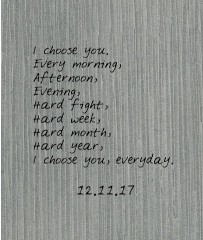 I choose you.
Every morning,
Afternoon,
Evening,
Hard fight,
Hard week,
Hard month,
Hard year,
I choose you, everyday.
12.11.17